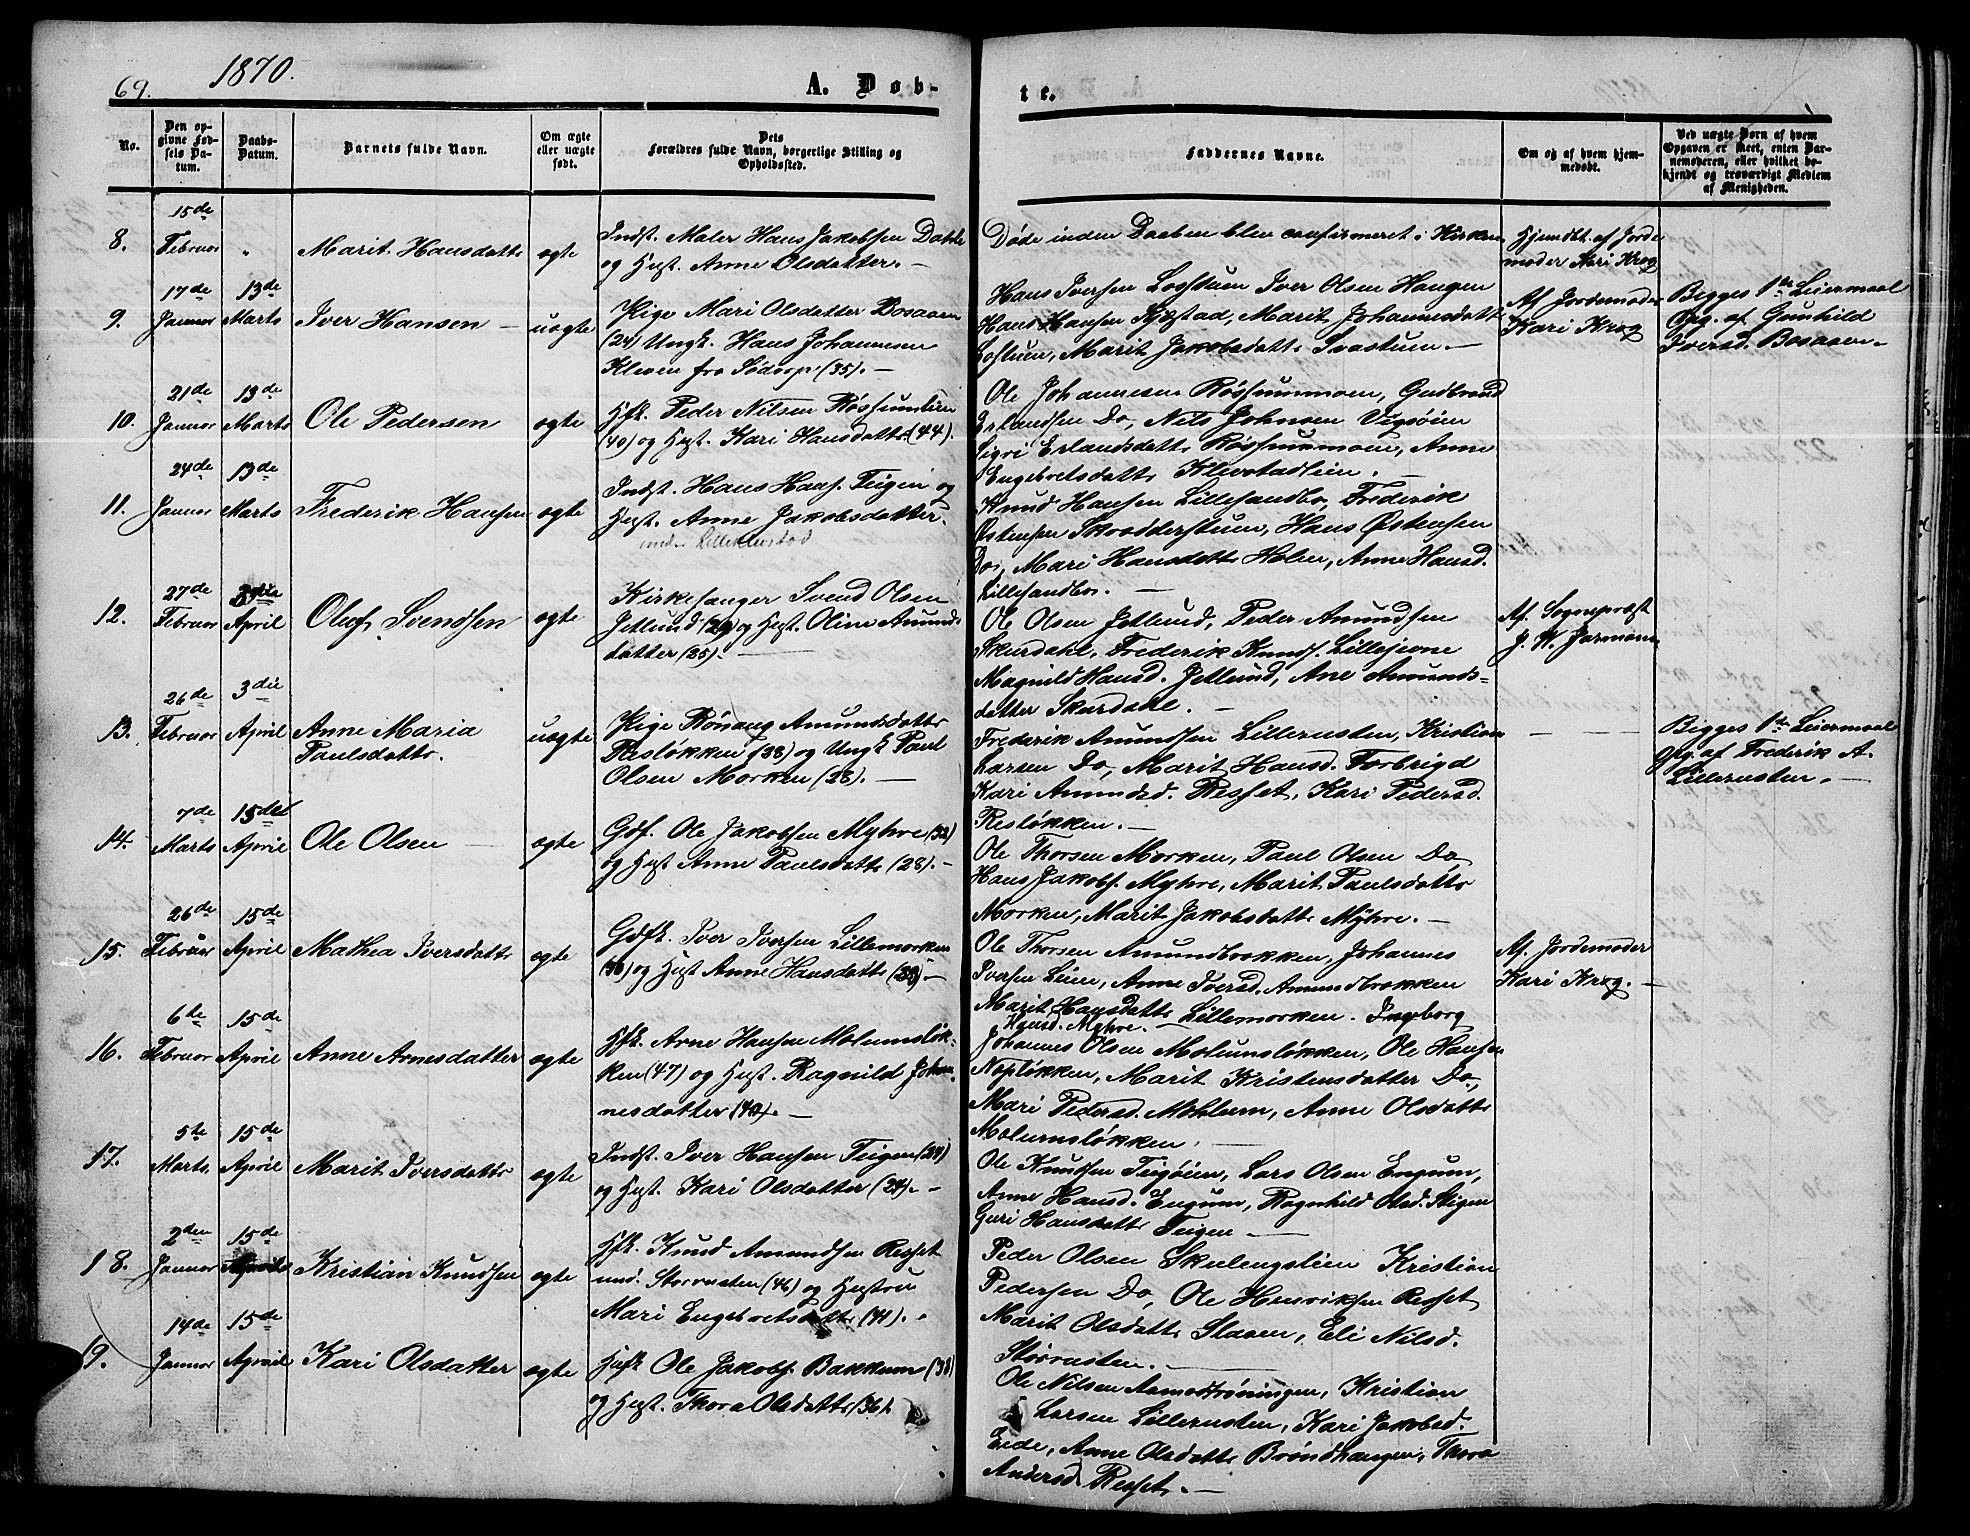 69.
1870.
A. Døb-
te.
No.
Den op-
givne Fød-
sels Da-
tum.
Daabs-
Datum.
Barnets fulde Navn.
Om ægte
eller uægte
født.
Dets
Forældres fulde Navn, borgerlige Stilling og
Opholdssted.
Faddernes Navne.
Om og af hvem hjem-
medøbt.
Ved uægte Børn af hvem
Opgaven er skeet, enten Bar-
nemoderen, eller hvilket be-
kjendt og troværdigt Medlem
af Menigheden.
8.
15de
Februar
"
Marit Hansdatter
ægte
Indst. Maler Hans Jakobsen Dahle
og Hust. Anne Olsdatter. -
Døde inden Daaben blev confirmeret i Kirken
Hjemdbt. af Jorde
moder Kari Krog
9.
17de
Januar
13de
Marts
Iver Hansen -
uægte
Pige Mari Olsdatter Bosaaen
(24) Ungk. Hans Johannesen
Kleven fra Sødorp (35). -
Hans Iversen Loftuen Iver Olsen Haugen
Hans Hansen Kjæstad, Marit Johannesdatter
Loftuen, Marit Jakobsdatt. Svastuen. -
Af Jordemoder
Kari Krog
Begges 1ste Leiermaal
Opg. af Gunhild
Iversd. Bosaaen -
10.
21de
Januar
13de
Marts
Ole Pedersen
ægte
Hfk. Peder Nilsen Røssumlien
(40) og Hust. Kari Hansdatter (44).
Ole Johannesen Røssummoen, Gudbrand
Erlandsen Do, Nils Johnsen Vigsøien
Sigri Erlandsdatter Røssummoen, Anne
Engebretsdatter Klevstadlien. -
11.
24de
Januar
13de
Marts
Frederik Hansen
ægte
Indst. Hans Hans. Teigen og
Hust. Anne Jakobsdatter.
under Lilleklevstad
Knud Hansen Lillesandbo, Frederik
Østensen Skrædderstuen, Hans Østensen
Do, Mari Hansdatter Holen, Anne Hansd.
Lillesandbo. -
12.
27de
Februar
3die
April
Oluf Svendsen
ægte
Kirkesanger Svend Olsen
Jetlund (29) og Hust. Oline Amunds
datter (25). -
Ole Olsen Jetlund, Peder Amundsen
Skurdahl, Frederik Knuds. Lillejevne
Magnild Hansd. Jetlund, Ane Amunds-
datter Skurdahl. -
Af. Sognepræst
J. W. Jarmann
13.
26de
Februar
3die
April
Anne Maria
Paulsdatter.
uægte
Pige Rønaug Amundsdatter
Resløkken (33) og Ungk Paul
Olsen Morken (28). -
Frederik Amundsen Lillerusten, Kristian
Larsen Do, Marit Hansd. Forbrigd
Kari Amundsd. Resset, Kari Pedersd.
Resløkken. -
Begges 1ste Leiermaal
Opg. af Frederik A.
Lillerusten. -
14.
7de
Marts
15de
April
Ole Olsen -
ægte
Gdf. Ole Jakobsen Myhre (32)
og Hust Anne Paulsdatter (28). -
Ole Thorsen Morken, Paul Olsen Do
Hans Jakobs. Myhre, Marit Paulsdatter
Morken, Marit Jakobsdatter Myhre. -
15.
26de
Februar
15de
April
Mathea Iversdatter
ægte
Gdfk. Iver Iversen Lillemorken
og Hust Anne Hansdatter -
Ole Thorsen Amundbakken, Johannes
Iversen Leine, Anne Iversd. Amundbakken
Marit Hansdatter Lillemorken. Ingeborg
Hansd. Myhre. -
Af. Jordemoder
Kari Krog. -
16.
6de
Februar
15de
April
Anne Arnesdatter
ægte
Hfk. Arne Hansen Molumsløk-
ken (47) og Hust. Ragnild Johan-
nesdatter (40). -
Johannes Olsen Molumsløkken, Ole Hansen
Nopløkken, Marit Kristensdatter Do,
Mari Pedersd. Mohlum, Anne Olsdatter
Molumsløkken. -
17.
5te
Marts
15de
April
Marit Iversdatter
ægte
Indst. Iver Hansen Teigen (24)
og Hust. Kari Olsdatter (24). -
Ole Knudsen Teigøien, Lars Olsen Engum,
Anne Hansd. Engum, Ragnhild Olsd. Stigen
Guri Hansdatter Teigen -
18.
2den
Januar
15de
April
Kristian Knudsen
ægte
Hfk. Knud Amundsen Resset
und. Storrusten (46) og Hustru
Mari Engebretsdatter (41). "
Peder Olsen Skulengslien Kristian
Pedersen Do, Ole Henriksen Resset
Marit Olsdatter Slaaen, Eli Nilsd.
Storrusten. -
19.
14de
Januar
15de
April
Kari Olsdatter
ægte
Husf. Ole Jakobs. Bakkum (38)
og Hust. Thora Olsdatter (36).
Ole Nilsen Aamodtrøningen, Kristian
Larsen Lillerusten, Kari Jakobsd.
Eide, Anne Olsdatter Brøndhaugen, Thora
Andersd Resset. -